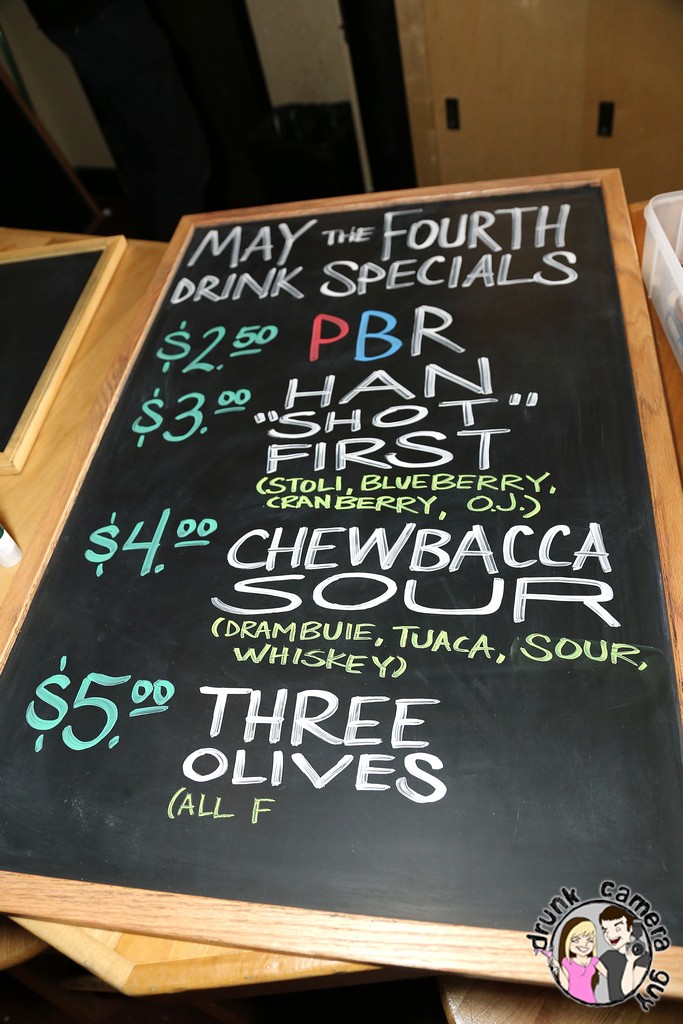 MAY THE FOURTH
DRINK SPECIALS
$2.50 PBR
$3.00 HAN
"SHOT"
FIRST
(STOLI, BLUEBERRY,
CRANBERRY, O.J.)
$4.00 CHEWBACCA
SOUR
(DRAMBUIE, TUACA, SOUR,
WHISKEY)
$5.00 THREE
OLIVES
(ALL F
drunk camera guy